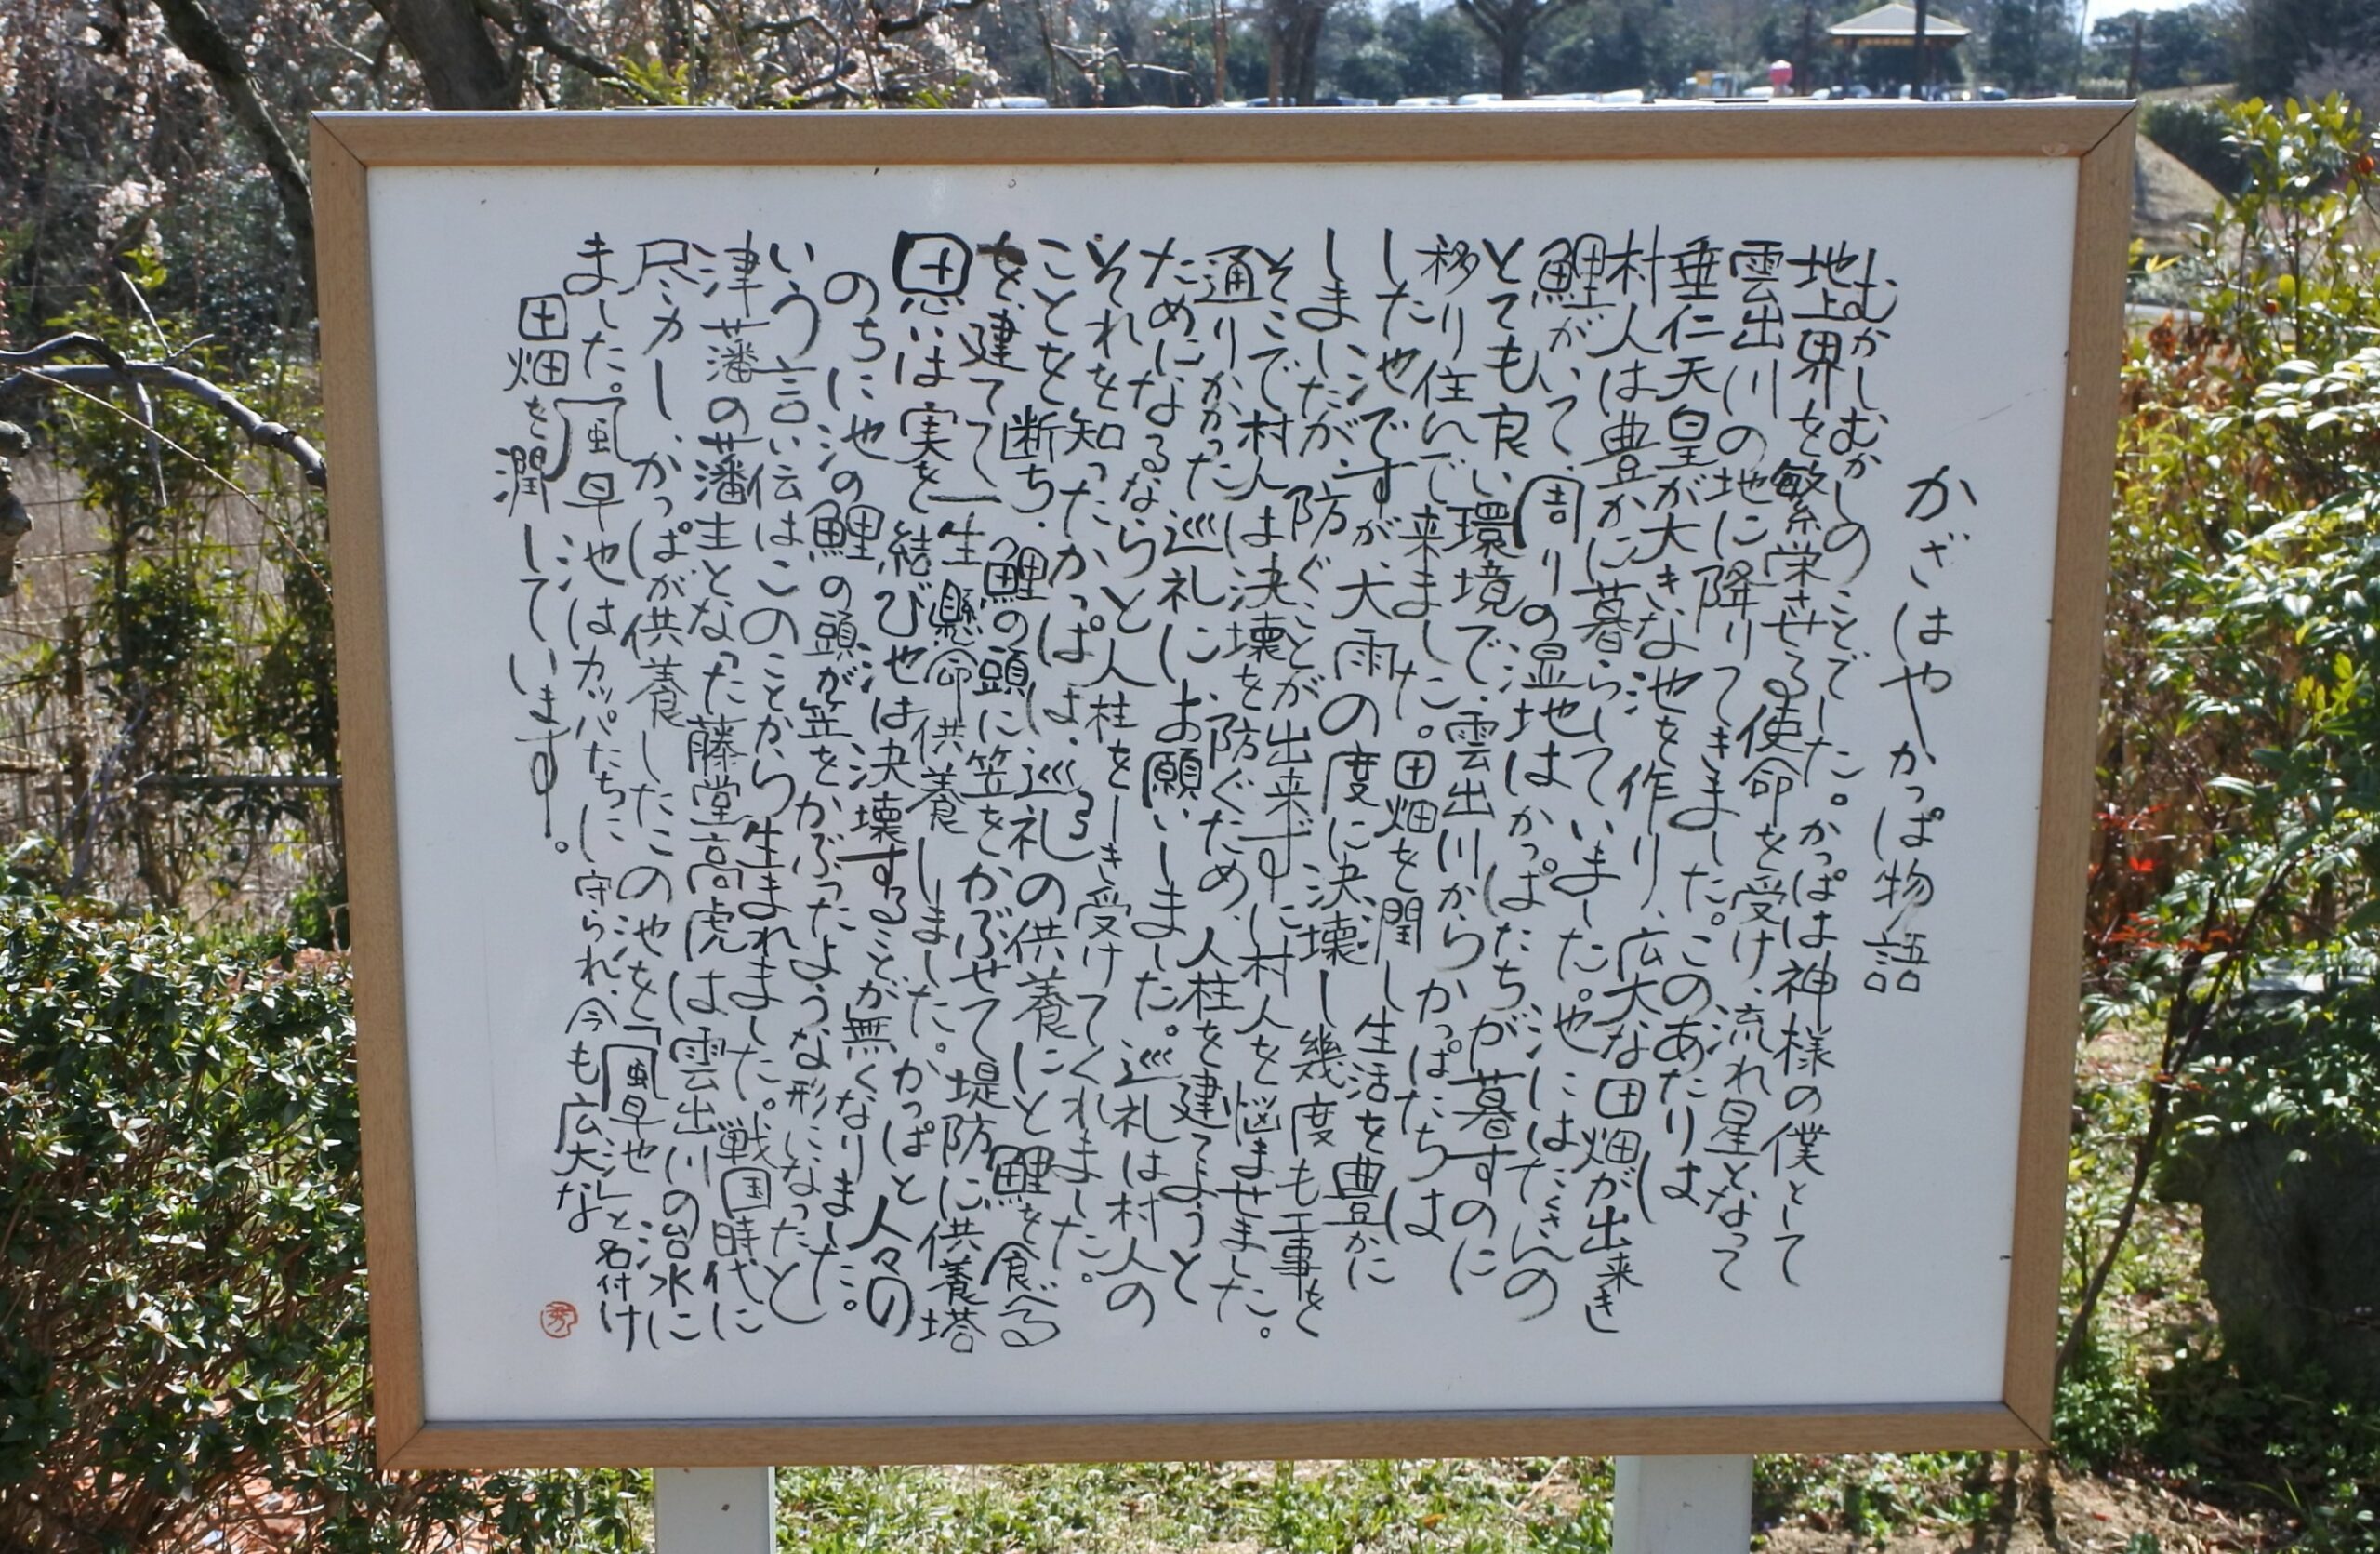 かざはやかっぱ物語
むかしむかしのことでした。かっぱは神様の僕として
地上界を繁栄させる使命を受け、流れ星となって
雲出川の地に降りてきました。このあたりは
垂仁天皇が大きな池を作り、広大な田畑が出来
村人は豊かに暮らしていました。池にはたくさんの
鯉がいて、周りの湿地はかっぱたちが暮すのに
とても良い環境で、雲出川からかっぱたちは
移り住んで来ました。田畑を潤し生活を豊かに
した池ですが、大雨の度に決壊し幾度も工事を
しましたが、防ぐことが出来ずに村人を悩ませました。
そこで村人は決壊を防ぐため、人柱を建てようと
通りかかった巡礼にお願いしました。巡礼は村人の
ためになるならと人柱を引き受けてくれました。
それを知ったかっぱは、巡礼の供養にと鯉を食べる
ことを断ち、鯉の頭に笠をかぶせて堤防に供養塔
を建てて一生懸命供養しました。かっぱと人々の
思いは実を結び池は決壊することが無くなりました。
のちに池の鯉の頭が笠をかぶったような形になったと
いう言い伝はこのことから生まれました。戦国時代に
津藩の藩主となった藤堂高虎は雲出川の治水に
尽力し、かっぱが供養したこの池を「風早池」と名付け
ました。「風早池はカッパたちに守られ、今も広大な
田畑を潤しています。
秀